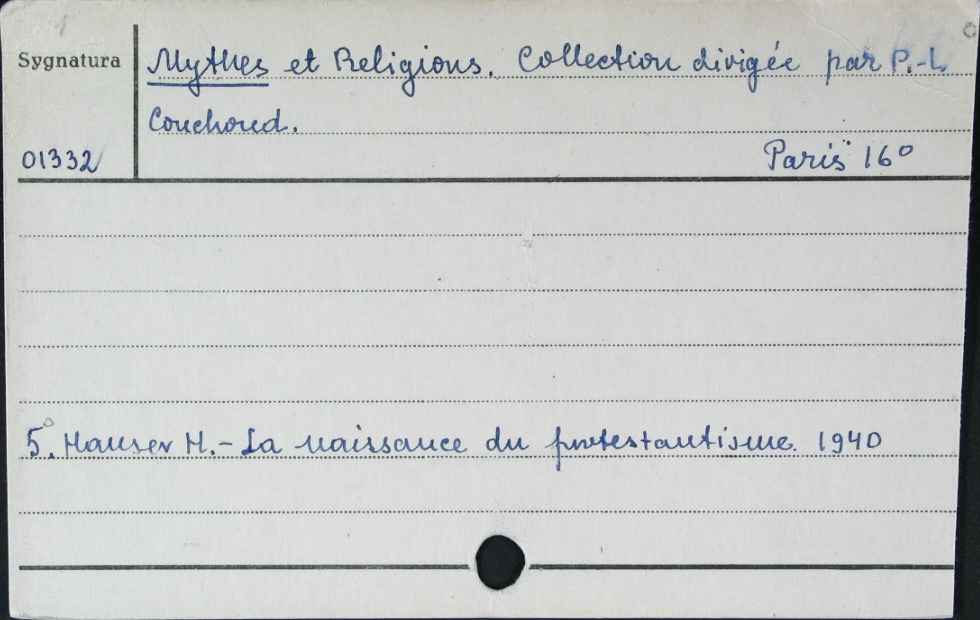 Sygnatura
Mythes et Religions. Collection dirigée par P.-L.
Couchoud.
01332
Paris 16°
5°. Hauser H. - La naissance du protestantisme. 1940